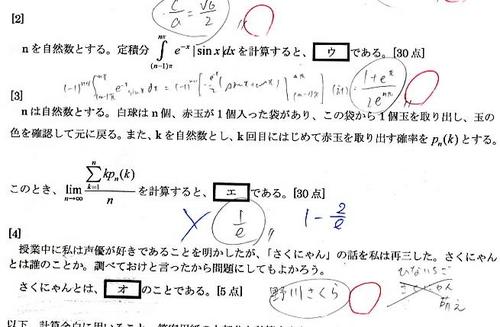 c/a = √6/2
[2]
nを自然数とする。定積分 ∫_{(n-1)π}^{nπ} e^{-x}|sin x|dx を計算すると、ウである。[30点]
(1+e^π)/(2e^{nπ})
[3]
nは自然数とする。白球はn個、赤玉が1個入った袋があり、この袋から1個玉を取り出し、玉の
色を確認して元に戻る。また、kを自然数とし、k回目にはじめて赤玉を取り出す確率をp_n(k)とする。
このとき、lim_{n→∞} (∑_{k=1}^{n} kp_n(k))/n を計算すると、エである。[30点]
1/e 1 - 2/e
[4]
授業中に私は声優が好きであることを明かしたが、「さくにゃん」の話を私は再三した。さくにゃん
とは誰のことか。調べておけと言ったから問題にしてもよかろう。
さくにゃんとは、オのことである。[5点]
野川さくら
ひないちご
さくにゃん
萌え